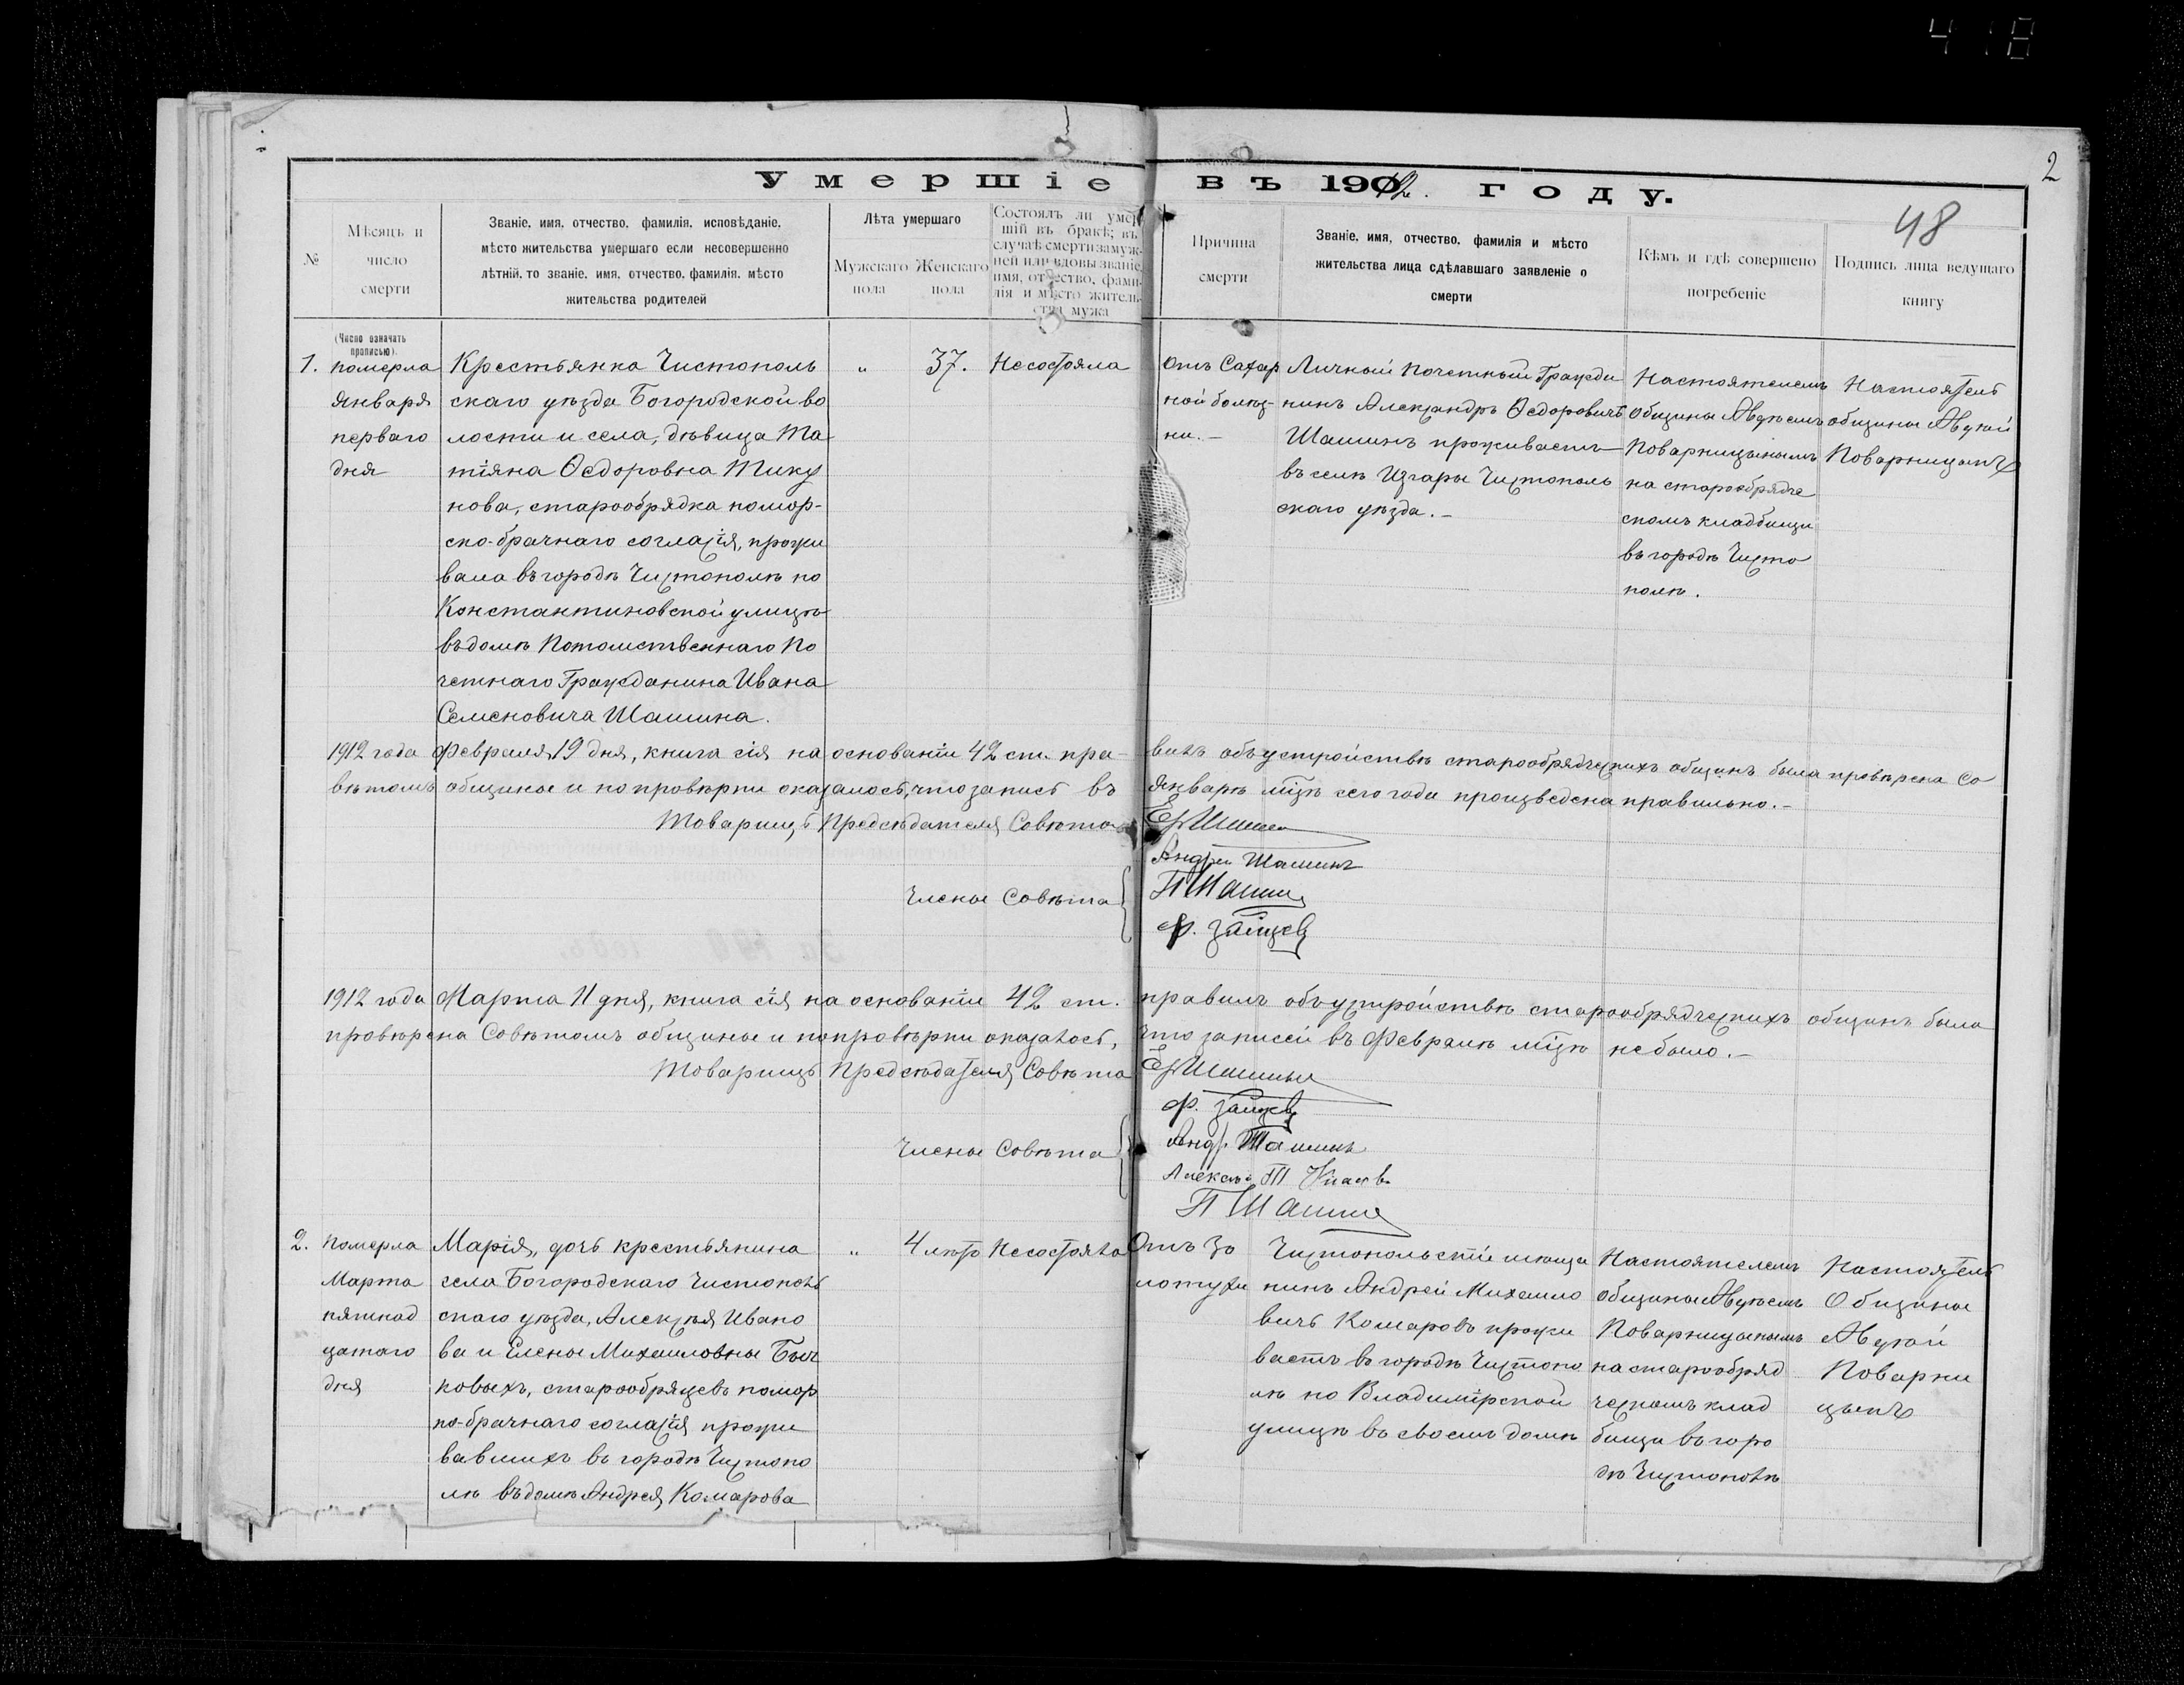 418
2
48
Умершіе въ 1912. году.
№
Мѣсяцъ и
число
смерти
(Число означать
прописью).
Званіе, имя, отчество, фамилія, исповѣданіе,
мѣсто жительства умершаго если несовершенно
лѣтній, то званіе, имя, отчество, фамилія, мѣсто
жительства родителей
Лѣта умершаго
Мужскаго
пола
Женскаго
пола
Состоялъ ли умер
шій въ бракѣ; въ
случаѣ смерти замуж-
ней или вдовы званіе,
имя, отчество, фами-
лія и мѣсто житель-
ства мужа
Причина
смерти
Званіе, имя, отчество, фамилія и мѣсто
жительства лица сдѣлавшаго заявленіе о
смерти
Кѣмъ и гдѣ совершено
погребеніе
Подпись лица ведущаго
книгу
1.
померла
Января
перваго
дня
Крестьянка Чистополь
скаго уѣзда Богородской во
лости и села, дѣвица Та
тіяна Ѳедоровна Тику
нова, старообрядка помор-
ско-брачнаго согласія, прожи
вала въ городѣ Чистополѣ по
Константиновской улицѣ
въ домѣ Потомственнаго По
четнаго Гражданина Ивана
Семеновича Шашина.
„
37.
Несостояла
Отъ Сахар
ной болѣз-
ни.-
Личный Почетный Гражда
нинъ Александръ Ѳедоровичъ
Шашинъ проживаетъ
въ селѣ Изгары Чистополь
скаго уѣзда.-
Настоятелемъ
общины Авдѣемъ
Поварницынымъ
на старообрядче
скомъ кладбищи
въ городѣ Чисто
полѣ.
Настоятель
общины Авдѣй
Поварницынъ
1912 года Февраля 19 дня, книга сія на основаніи 42 ст. пра- вилъ объ устройствѣ старообрядческихъ общинъ была провѣрена Со
вѣтомъ общины и по провѣрки оказалось, что запись въ Январѣ мѣцѣ сего года произведена правильно.-
Товарищъ Предсѣдателя Совѣта
Андрей Шашинъ
Члены Совѣта
П Шашинъ
Ф. Зайцевъ
1912 года Марта 11 дня, книга сія на основаніи 42 ст. правилъ объ устройствѣ старообрядческихъ общинъ была
провѣрена Совѣтомъ общины и по провѣрки оказалось, что записей въ Февралѣ мѣцѣ не было.-
Товарищъ Предсѣдателя Совѣта
Ф. Зайцевъ
Члены Совѣта
Андр. Шашинъ
П Шашинъ
2.
Померла
Марта
пятнад
цатаго
дня
Марія, дочь крестьянина
села Богородскаго Чистополь
скаго уѣзда, Алексѣя Ивано
ва и Елены Михаиловны Быч
ковыхъ, старообрядцевъ помор
ко-брачнаго согласія прожи
вавшихъ въ городѣ Чистопо
лѣ въ домѣ Андрея Комарова
„
4 лѣтъ
Несостояла
Отъ Зо
лотухи
Чистопольскій мѣща
нинъ Андрей Михаило
вичъ Комаровъ прожи
ваетъ въ городѣ Чистопо
лѣ по Владимірской
улицѣ въ своемъ домѣ
Настоятелемъ
общины Авдѣемъ
Поварницынымъ
на старообряд
ческомъ клад
бищи въ горо
дѣ Чистополѣ
Настоятель
Общины
Авдѣй
Поварни
цынъ